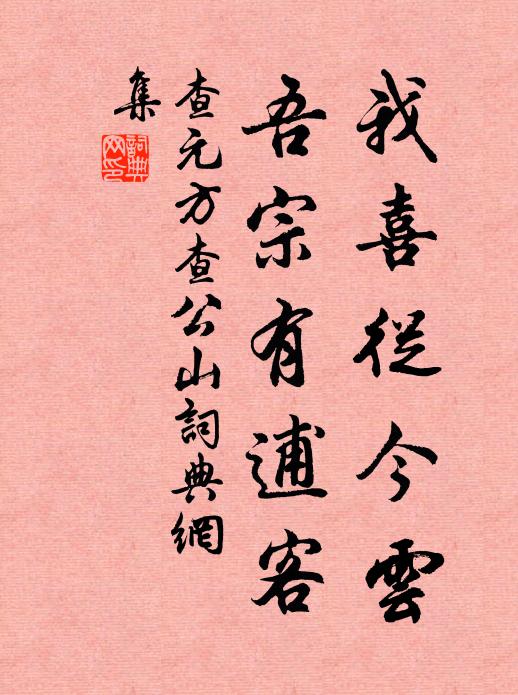 我喜從今雲
吾宗有逋客
查元方查公山詞典網
集
詞典網印